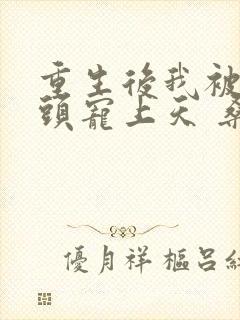 重生後我被
頭寵上天
優月祥樞呂